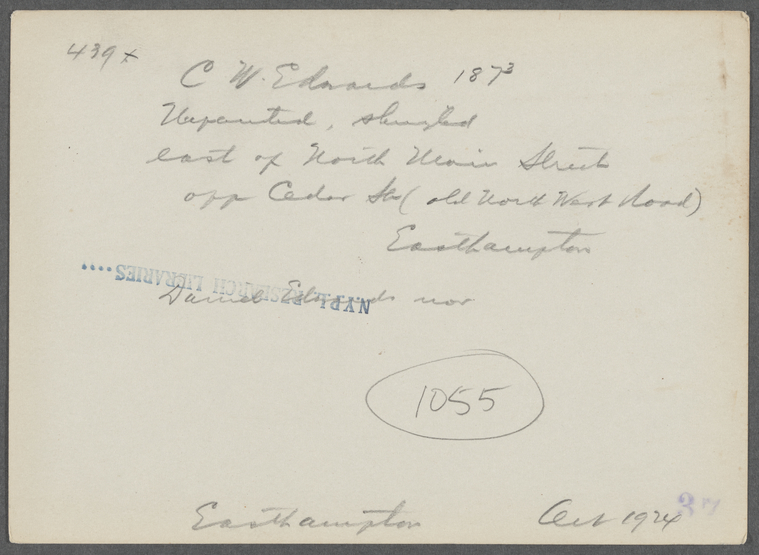 439x
C W. Edwards 1873
Unpainted, shingled
east of North Main Street
opp Cedar St (old North West Road)
Easthampton
N.Y.P.L. RESEARCH LIBRARIES....
Daniel Edwards
1055
Easthampton Oct 1924
37